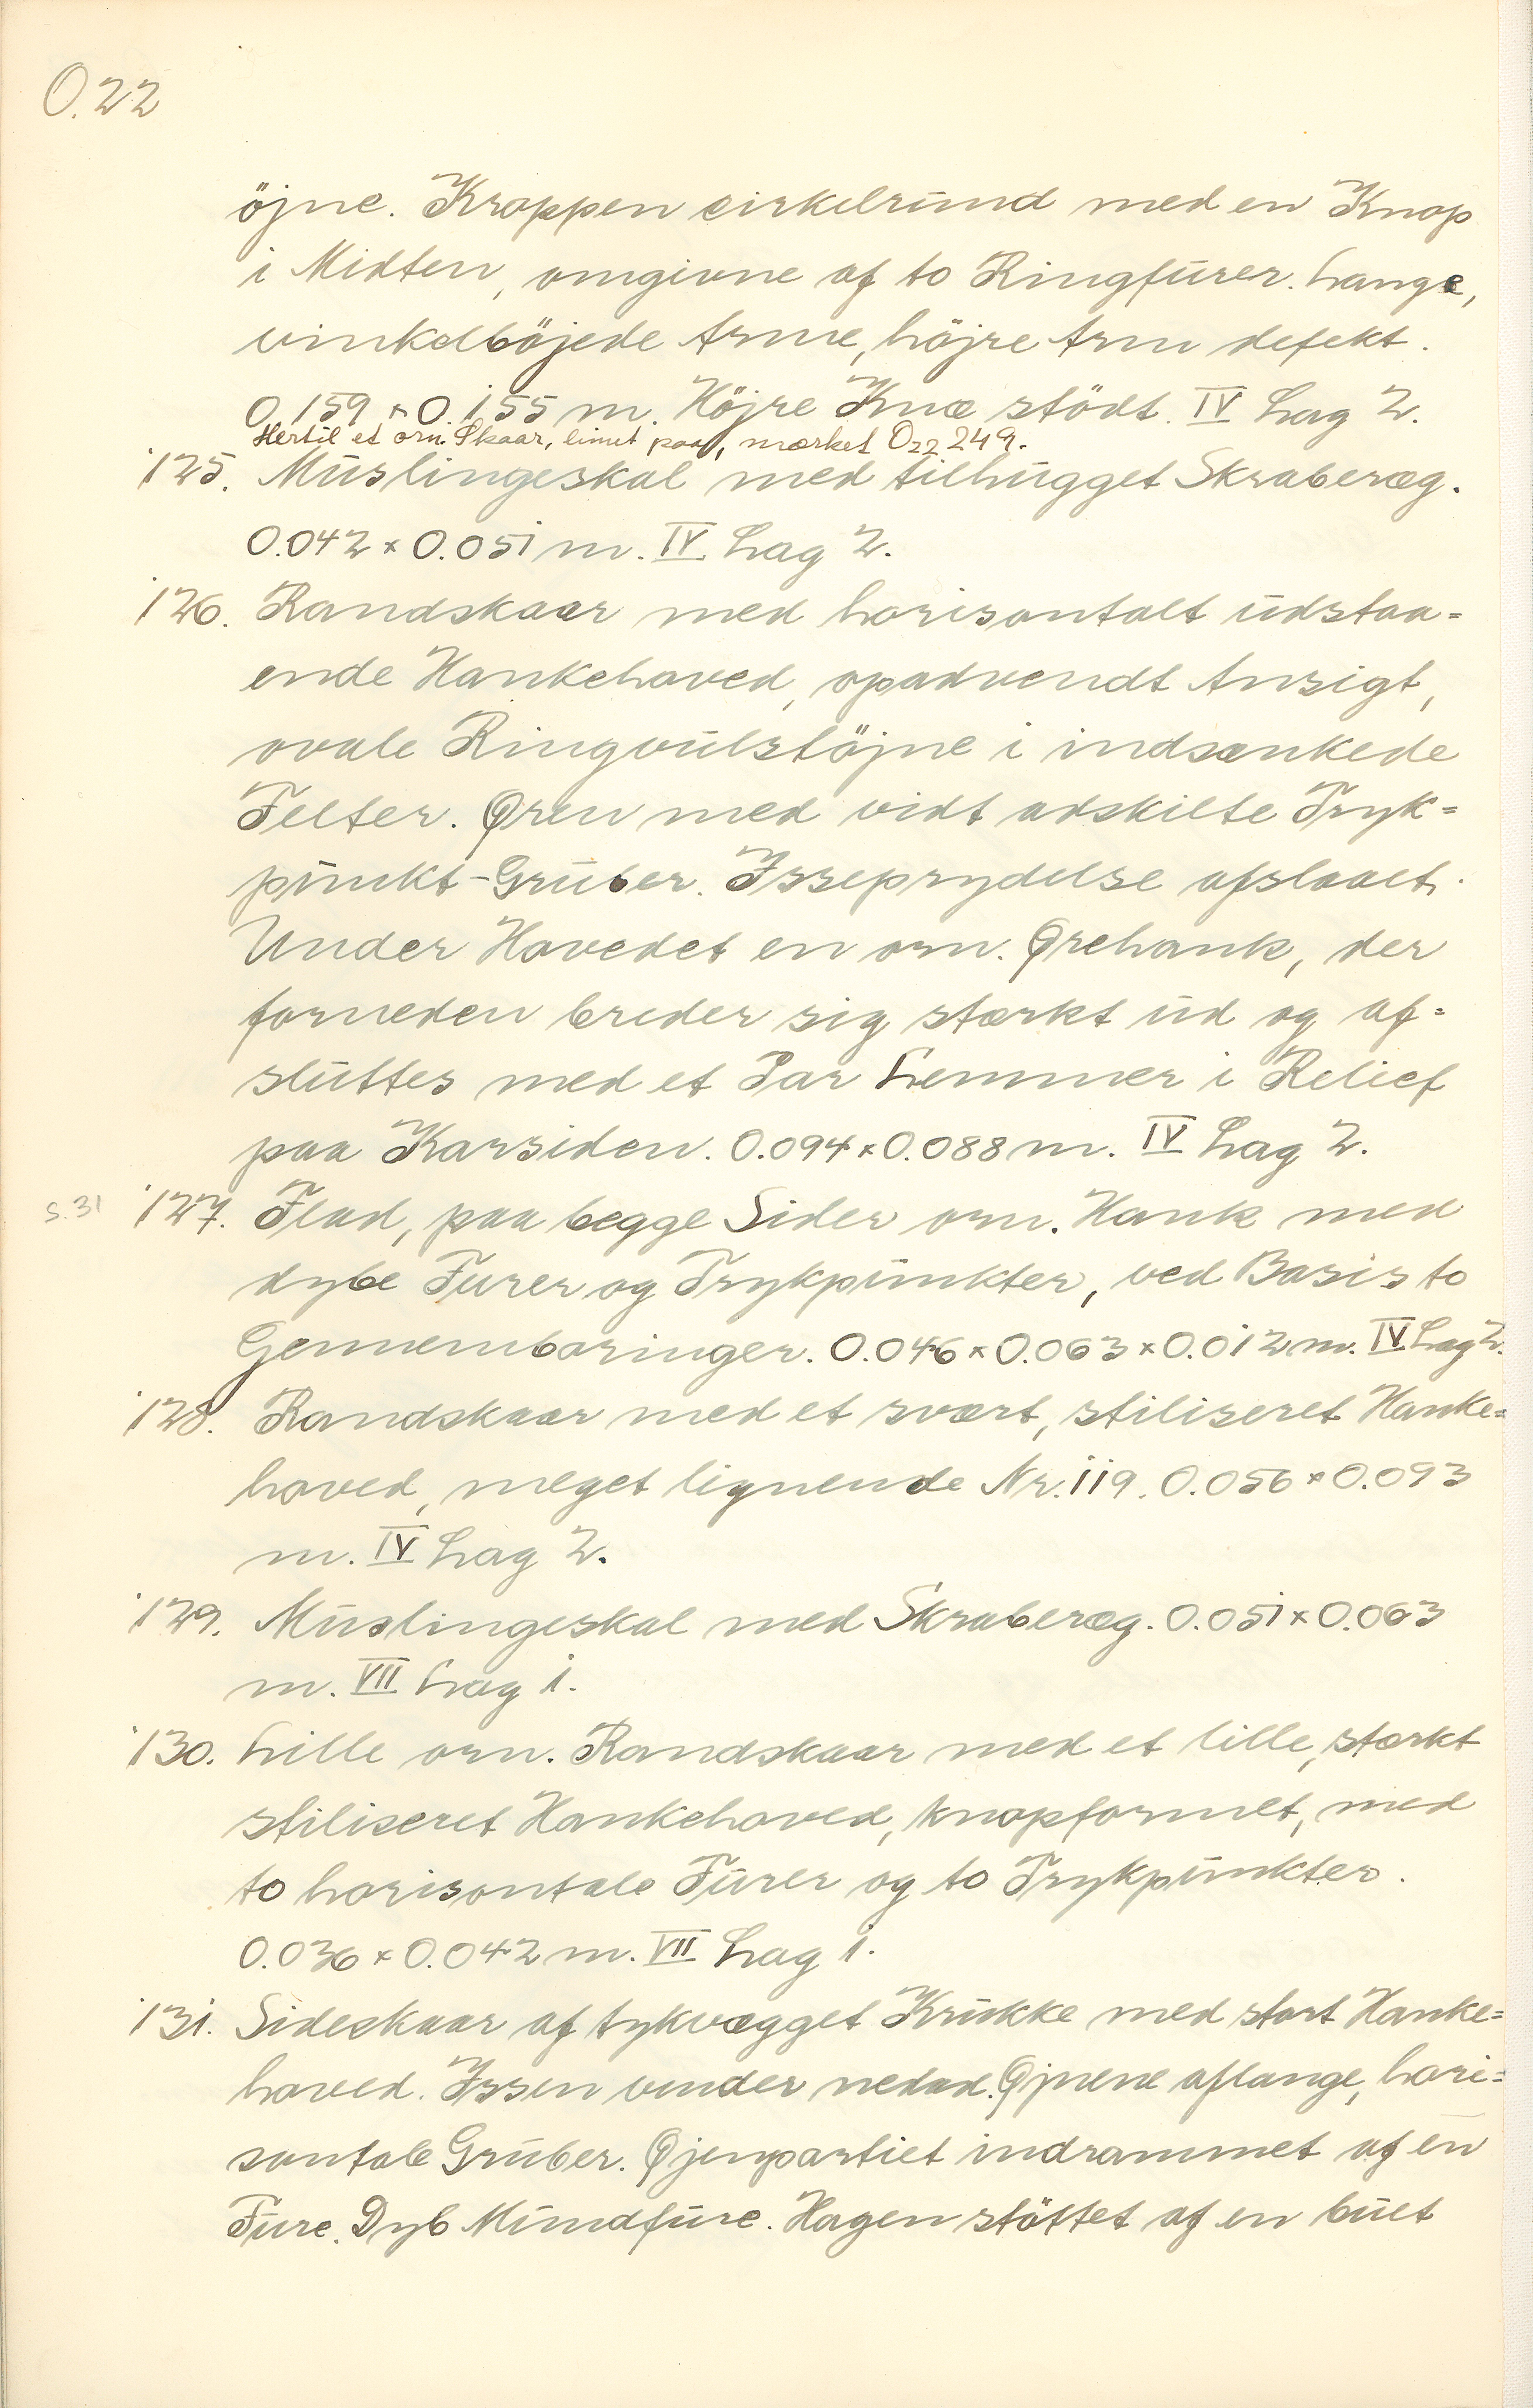 O.22
öjne. Kroppen cirkelrund med en Knop
i Midten, omgivne af to Ringfurer. Lange,
vinkelböjede Arme, höjre Arm defekt.
0.159 × 0.155 m. Höjre Knæ stödt. IV Lag 2.
Hertil et orn. Skaar, limet paa, mærket O22 249.
125. Muslingeskal med tilhugget Skraberæg.
0.042 × 0.051 m. IV Lag 2.
126. Randskaar med horisontalt udstaa=
ende Hankehoved, opadvendt Ansigt,
ovale Ringvulstöjne i indsænkede
Felter. Øren med vidt adskilte Tryk=
punkt-Gruber. Isseprydelse afslaaet.
Under Hovedet en orn. Ørehank, der
forneden breder sig stærkt ud og af=
sluttes med et Par Lemmer i Relief
paa Karsiden. 0.094 × 0.088 m. IV Lag 2.
s. 31 127. Flad, paa begge Sider orn. Hank med
dybe Furer og Trykpunkter, ved Basis to
Gennemboringer. 0.046 × 0.063 × 0.012 m. IV Lag 2.
128. Randskaar med et svært, stiliseret Hanke=
hoved, meget lignende Nr. 119. 0.056 × 0.093
m. IV Lag 2.
129. Muslingeskal med Skraberæg. 0.051 × 0.063
m. VII Lag 1.
130. Lille orn. Randskaar med et lille, stærkt
stiliseret Hankehoved, knopformet, med
to horisontale Furer og to Trykpunkter.
0.036 × 0.042 m. VII Lag 1.
131. Sideskaar af tykvægget Krukke med stort Hanke=
hoved. Issen vender nedad. Øjnene aflange, hori=
sontale Gruber. Øjenpartiet indrammet af en
Fure. Dyb Mundfure. Hagen stöttet af en buet